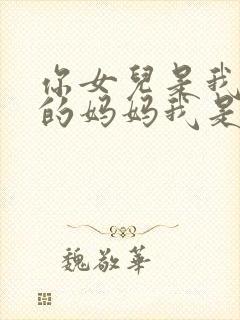 你女兒是我
的妈妈我是
魏敬華